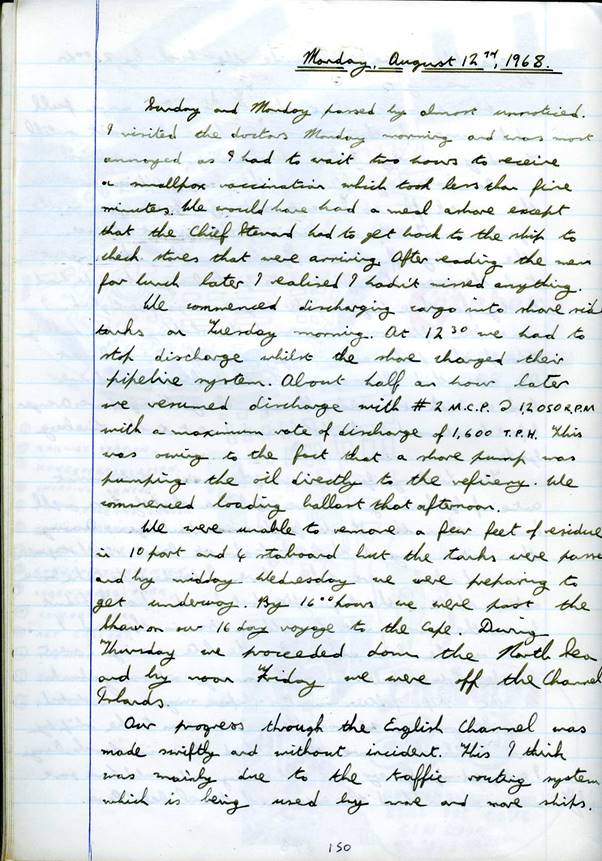 Monday, August 12TH, 1968.
Sunday and Monday passed by almost unnoticed.
I visited the doctors Monday morning and was most
annoyed as I had to wait two hours to receive
a smallpox vaccination which took less than five
minutes. We would have had a meal ashore except
that the Chief Steward had to get back to the ship to
check stores that were arriving. After reading the menu
for lunch later I realised I hadn't missed anything.
We commenced discharging cargo into shore side
tanks on Tuesday morning. At 1230 we had to
stop discharge whilst the shore charged their
pipeline system. About half an hour later
we resumed discharge with # 2 M.C.P. 12050 R.P.M
with a maximum rate of discharge of 1,600 T.P.H. This
was owing to the fact that a shore pump was
pumping the oil directly to the refinery. We
commenced loading ballast that afternoon.
We were unable to remove a few feet of residue
in 10 port and starboard but the tanks were
and by midday Wednesday we were preparing to
get underway. By 1600 hours we were past the
on our 16 day voyage to the Cape. During
Thursday we proceeded down the North Sea
and by noon Friday we were off the Channel
Islands.
Our progress through the English Channel was
made swiftly and without incident. This I think
was mainly due to the traffic routing system
which is being used by more and more ships.
150